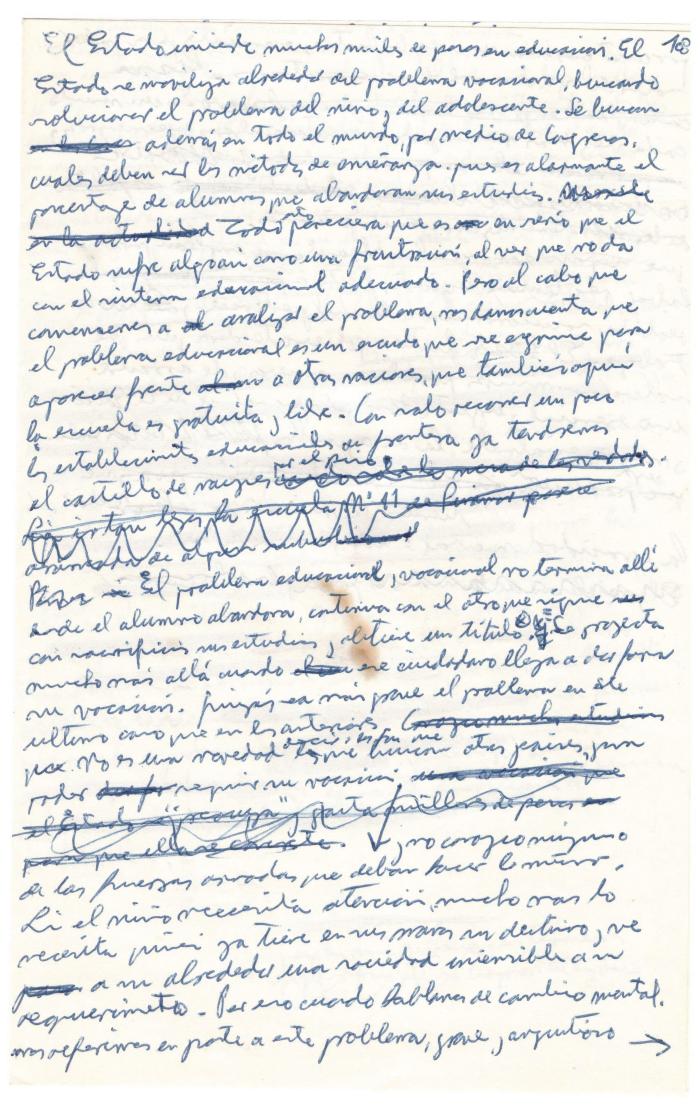 El Estado invierte muchos miles de pesos en educación. El 18
Estado se moviliza alrededor del problema vocacional, buscando
solucionar el problema del niño, del adolescente. Se buscan
además en todo el mundo, por medio de Congresos,
cuales deben ser los métodos de enseñanza pues es alarmante el
porcentaje de alumnos que abandonan sus estudios.
en la actualidad Todo esto pareciera que es en serio, que el
Estado sufre algo así como una frustración, al ver que no da
con el sistema educacional adecuado. Pero al cabo que
comencemos a analizar el problema, nos damos cuenta que
el problema educacional es un escudo que se esgrime para
aparecer frente a otras naciones, que también aquí
la escuela es gratuita y libre. Con solo recorrer un poco
los establecimientos educacionales de frontera ya tendremos
el castillo de naipes por el piso.
la escuela Nº 11
de alguna
El problema educacional, vocacional no termina allí
donde el alumno abandona, continua con el otro que sigue
con sacrificios sus estudios, y obtiene un título. Se proyecta
mucho más allá cuando ese ciudadano llega a desforar
su vocación. Quizás sea más grave el problema en este
ultimo caso que en los anteriores.
No es una novedad decir, esos que buscan otros paises, para
poder seguir su vocación una vocación que
el Estado "preocupa" y gasta millones de pesos
para que ella se concrete. y no conozco ninguno
de las fuerzas armadas que deban hacer lo mismo.
Si el niño necesita atención, mucho mas lo
necesita quien ya tiene en sus manos un destino, y ve
a su alrededor una sociedad insensible a su
requerimiento. Por eso cuando hablamos de cambio mental.
nos referimos en parte a este problema, grave, y angustioso →